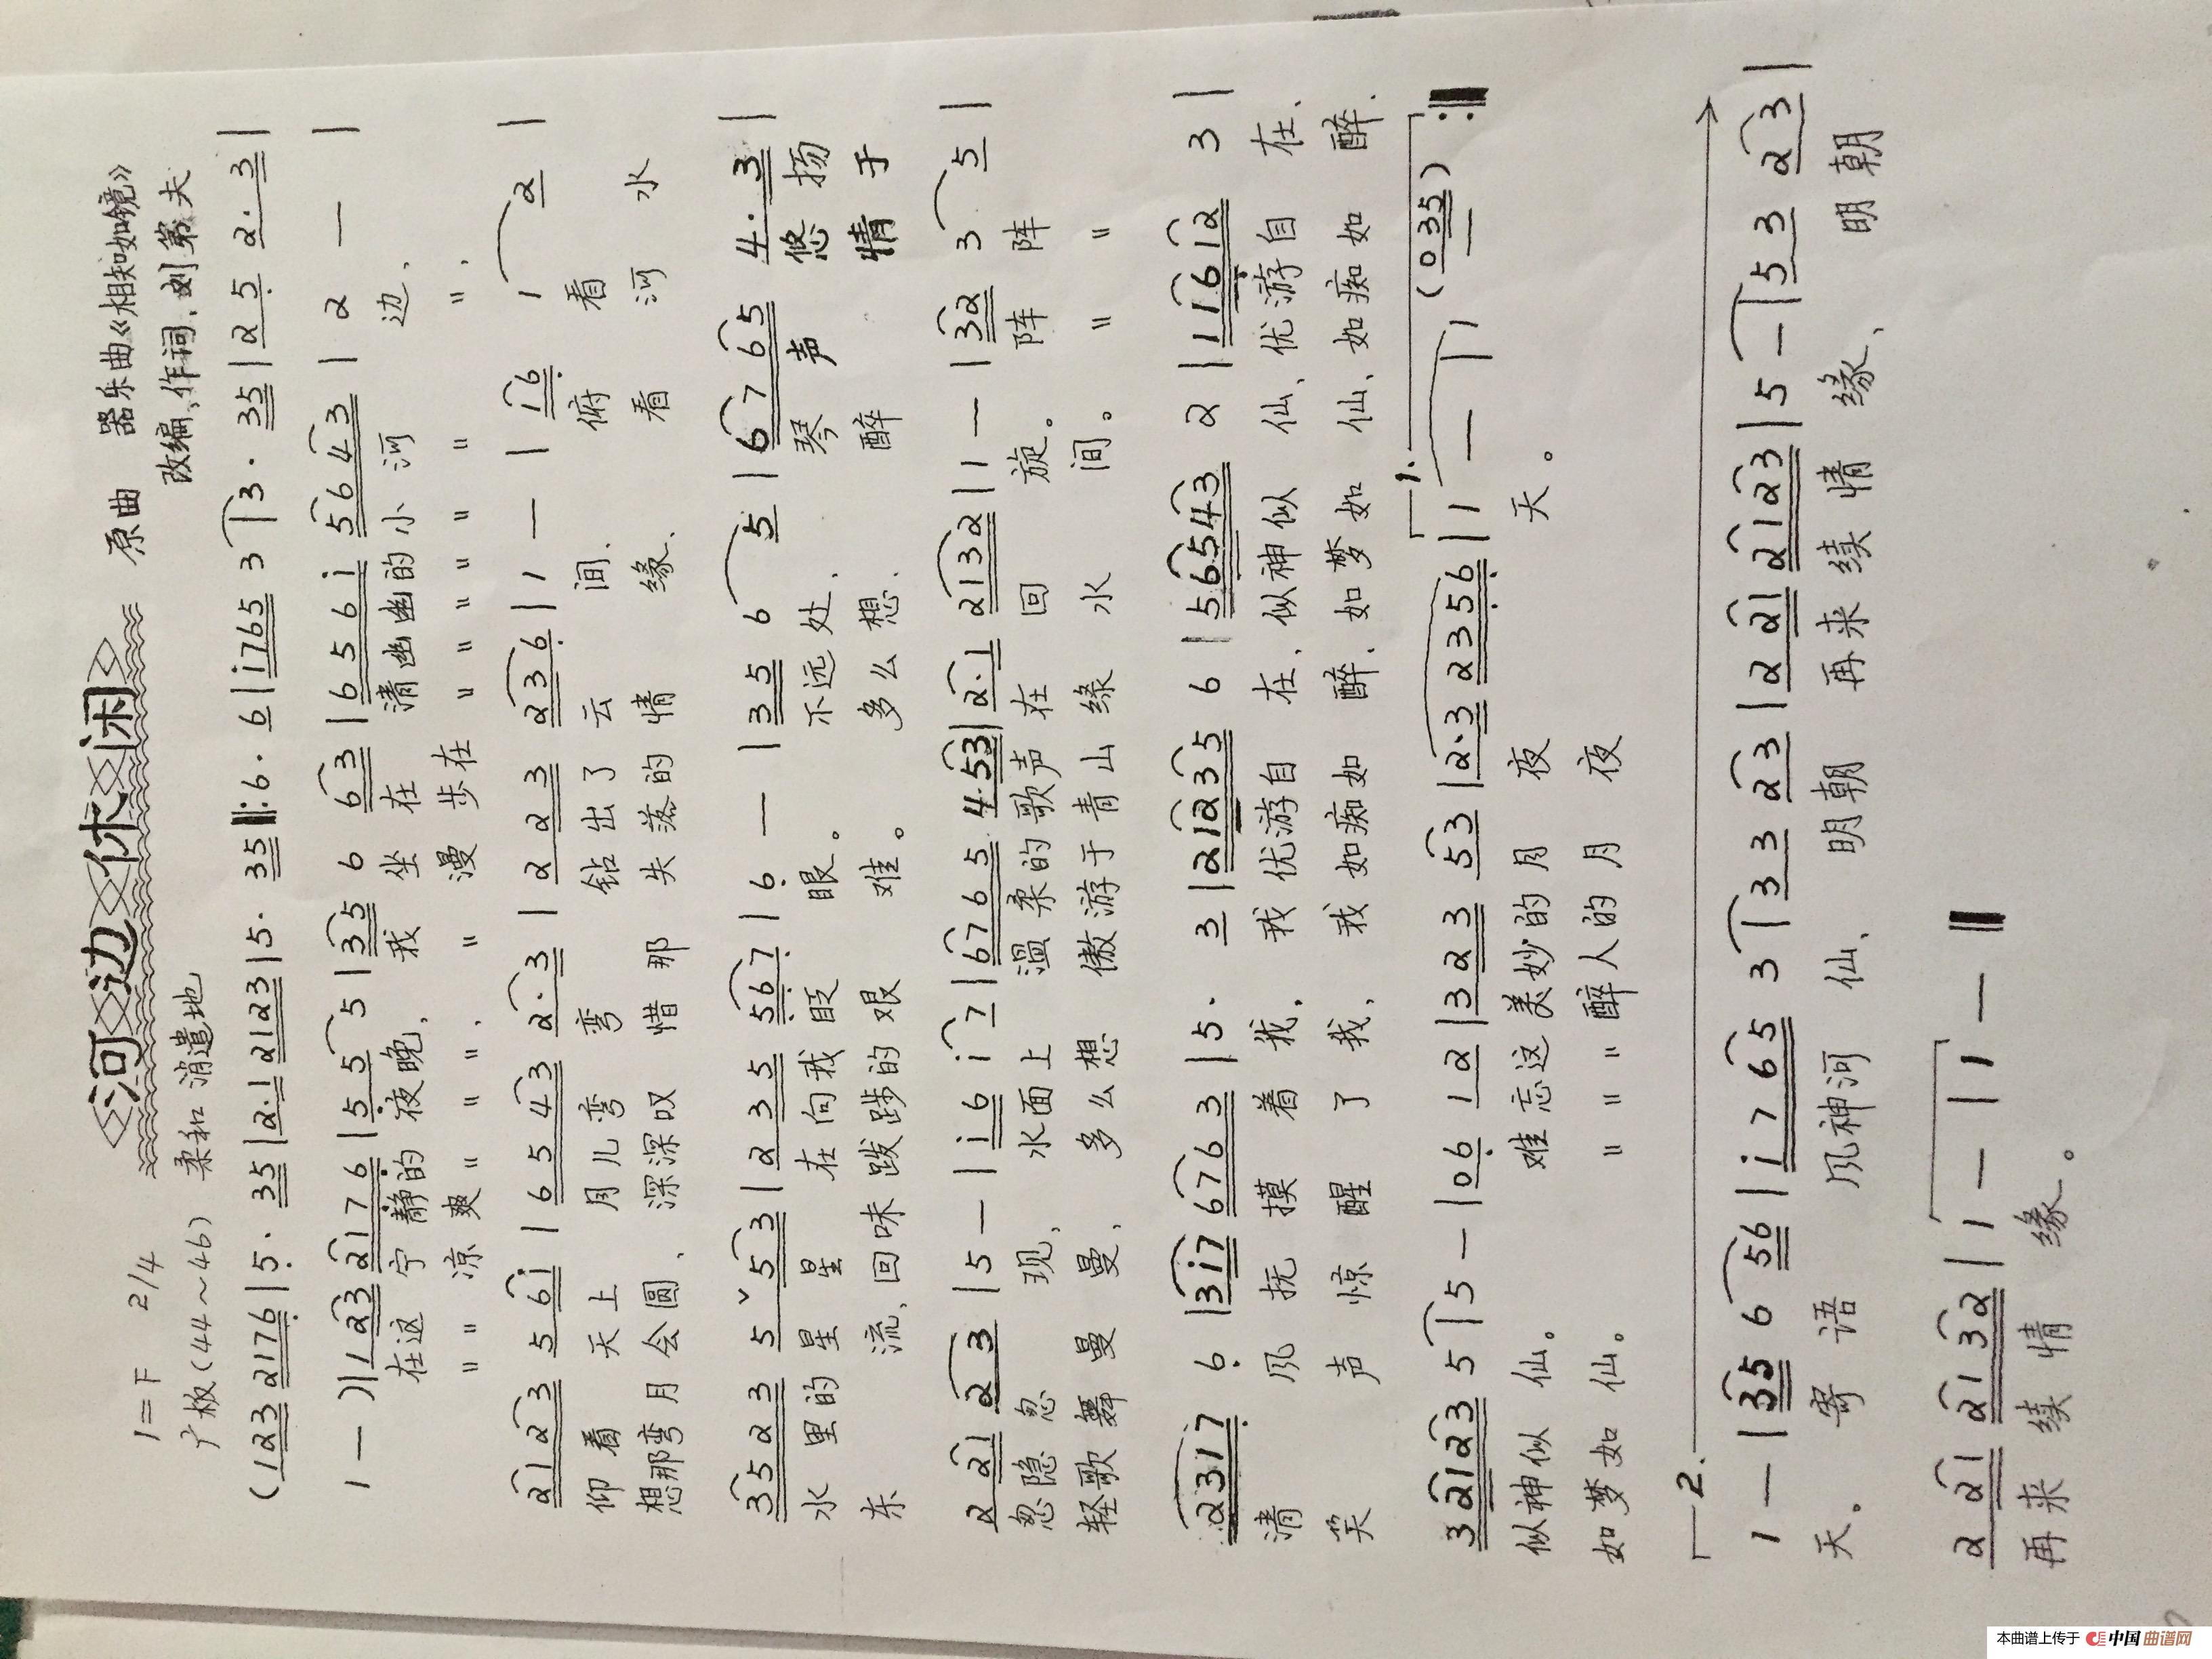 河边休闲
原曲 器乐曲《相知如镜》
改编、作词、刘第夫
1=F 2/4
广板(44~46) 柔和 消遣地
(123 2176 | 5· 35 | 2·1 2123 | 5· 35 ‖: 6· 6 | i765 3 | 3· 35 | 25 2·3 |
1 — )| 123 2176 | 55 5 | 35 6 63 | 656i 5643 | 2 — |
在这 宁静的夜晚, 我 坐在 清幽幽的小河 边、
〃〃 凉爽〃〃〃, 〃 漫步在 〃〃〃〃〃〃 〃,
2123 56i | 6543 2·3 | 223 236 | 1 — | 16 1 2 |
仰看 天上 月儿弯 弯 钻出了云 间、 俯 看 水
想那弯月会圆、 深深叹 惜 那 失落的情 缘、 看 河
3523 5ˇ53 | 235 567 | 6 — | 35 6 5 | 6765 4·3 |
水里的 星星 在向我 眨 眼。 不远处、 琴声 悠扬
东 流、回味 跋踄的 艰 难。 多么想、 醉 情于
2 21 23 | 5 — | i6 i7 | 6765 4·53 | 2·1 2132 | 1 — | 32 3 5 |
忽隐忽 现、 水面上 温柔的歌声 在 回 旋。 阵 阵
轻歌舞曼曼、 多么想 傲游于青山 缘 水 间。 〃 〃
2317 6 | 3i7 6763 | 5· 3 | 21235 6 | 56543 2 | 11612 3 |
清 风 抚摸着 我, 我 优游自 在、 似神似 仙、 优游自 在、
笑 声 惊醒了 我, 我 如痴如 醉、 如梦如 仙、 如痴如 醉、
32123 5 | 5 — | 06 12 | 323 53 | 2·3 2356 | 1. 1 — | 1 (035) :‖
似神似 仙。 难 忘这 美妙的月 夜 天。
如梦如 仙。 〃 〃〃 醉人的 月 夜
2.
1 — | 35 6 56 | i765 3 | 33 23 | 2 21 2123 | 5 — | 53 23 |
天。 寄 语 风神河 仙、 明朝 再来续情 缘、 明朝
2 21 2132 | 1 — | 1 — ‖
再来 续情 缘。
本曲谱上传于 中国曲谱网